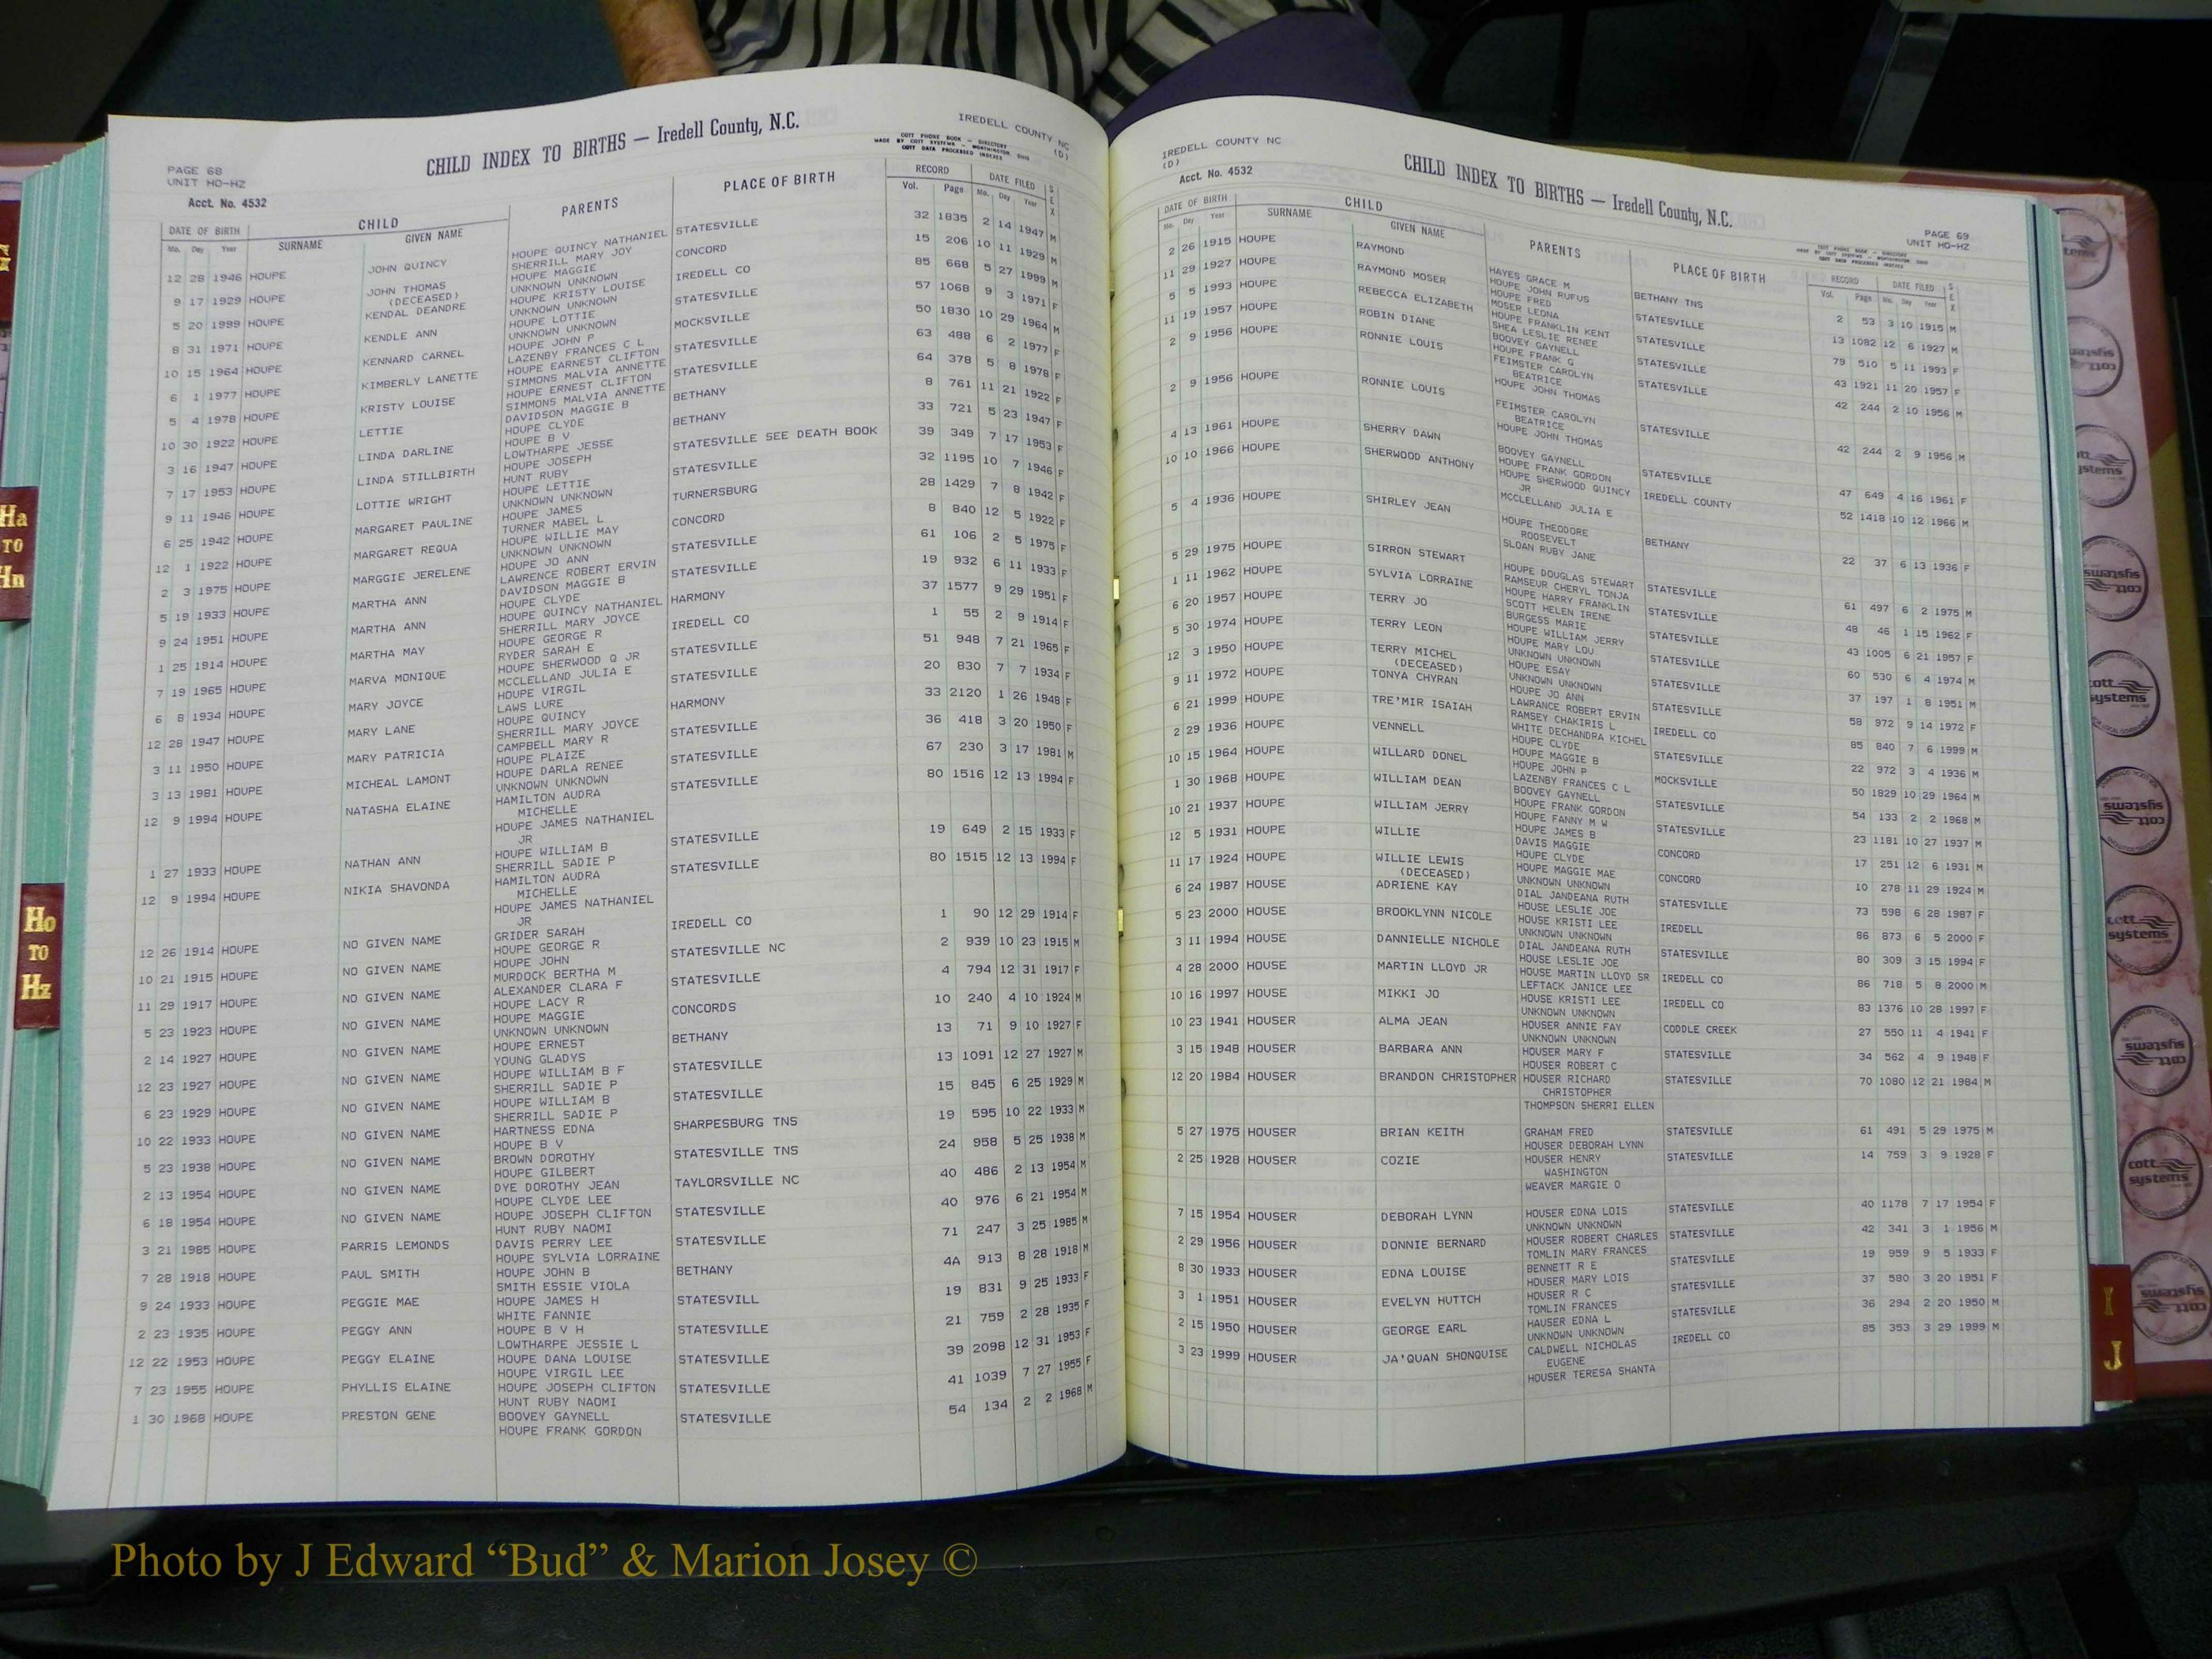 PAGE 68
UNIT HO-HZ
Acct. No. 4532
CHILD INDEX TO BIRTHS — Iredell County, N.C.
IREDELL COUNTY NC
(D)
COTT PHONE BOOK - DIRECTORY
MADE BY COTT SYSTEMS - WORTHINGTON, OHIO
COTT DATA PROCESSED INDEXES
DATE OF BIRTH CHILD PARENTS PLACE OF BIRTH RECORD DATE FILED SEX
Mo. Day Year SURNAME GIVEN NAME Vol. Page Mo. Day Year
12 28 1946 HOUPE JOHN QUINCY HOUPE QUINCY NATHANIEL STATESVILLE 32 1835 2 14 1947 M
SHERRILL MARY JOY
9 17 1929 HOUPE JOHN THOMAS HOUPE MAGGIE CONCORD 15 206 10 11 1929 M
(DECEASED) UNKNOWN UNKNOWN
5 20 1999 HOUPE KENDAL DEANDRE HOUPE KRISTY LOUISE IREDELL CO 85 668 5 27 1999 M
UNKNOWN UNKNOWN
8 31 1971 HOUPE KENDLE ANN HOUPE LOTTIE STATESVILLE 57 1068 9 3 1971 F
UNKNOWN UNKNOWN
10 15 1964 HOUPE KENNARD CARNEL HOUPE JOHN P MOCKSVILLE 50 1830 10 29 1964 M
LAZENBY FRANCES C L
6 1 1977 HOUPE KIMBERLY LANETTE HOUPE EARNEST CLIFTON STATESVILLE 63 488 6 2 1977 F
SIMMONS MALVIA ANNETTE
5 4 1978 HOUPE KRISTY LOUISE HOUPE ERNEST CLIFTON STATESVILLE 64 378 5 8 1978 F
SIMMONS MALVIA ANNETTE
10 30 1922 HOUPE LETTIE DAVIDSON MAGGIE B BETHANY 8 761 11 21 1922 F
HOUPE CLYDE
3 16 1947 HOUPE LINDA DARLINE HOUPE B V BETHANY 33 721 5 23 1947 F
LOWTHARPE JESSE
7 17 1953 HOUPE LINDA STILLBIRTH HOUPE JOSEPH STATESVILLE SEE DEATH BOOK 39 349 7 17 1953 F
HUNT RUBY
9 11 1946 HOUPE LOTTIE WRIGHT HOUPE LETTIE STATESVILLE 32 1195 10 7 1946 F
UNKNOWN UNKNOWN
6 25 1942 HOUPE MARGARET PAULINE HOUPE JAMES TURNERSBURG 28 1429 7 8 1942 F
TURNER MABEL L
12 1 1922 HOUPE MARGARET REQUA HOUPE WILLIE MAY CONCORD 8 840 12 5 1922 F
UNKNOWN UNKNOWN
2 3 1975 HOUPE MARGGIE JERELENE HOUPE JO ANN STATESVILLE 61 106 2 5 1975 F
LAWRENCE ROBERT ERVIN
5 19 1933 HOUPE MARTHA ANN DAVIDSON MAGGIE B STATESVILLE 19 932 6 11 1933 F
HOUPE CLYDE
9 24 1951 HOUPE MARTHA ANN HOUPE QUINCY NATHANIEL HARMONY 37 1577 9 29 1951 F
SHERRILL MARY JOYCE
1 25 1914 HOUPE MARTHA MAY HOUPE GEORGE R IREDELL CO 1 55 2 9 1914 F
RYDER SARAH E
7 19 1965 HOUPE MARVA MONIQUE HOUPE SHERWOOD Q JR STATESVILLE 51 948 7 21 1965 F
MCCLELLAND JULIA E
6 8 1934 HOUPE MARY JOYCE HOUPE VIRGIL STATESVILLE 20 830 7 7 1934 F
LAWS LURE
12 28 1947 HOUPE MARY LANE HOUPE QUINCY HARMONY 33 2120 1 26 1948 F
SHERRILL MARY JOYCE
3 11 1950 HOUPE MARY PATRICIA CAMPBELL MARY R STATESVILLE 36 418 3 20 1950 F
HOUPE PLAIZE
3 13 1981 HOUPE MICHEAL LAMONT HOUPE DARLA RENEE STATESVILLE 67 230 3 17 1981 M
UNKNOWN UNKNOWN
12 9 1994 HOUPE NATASHA ELAINE HAMILTON AUDRA STATESVILLE 80 1516 12 13 1994 F
MICHELLE
HOUPE JAMES NATHANIEL
JR
1 27 1933 HOUPE NATHAN ANN HOUPE WILLIAM B STATESVILLE 19 649 2 15 1933 F
SHERRILL SADIE P
12 9 1994 HOUPE NIKIA SHAVONDA HAMILTON AUDRA STATESVILLE 80 1515 12 13 1994 F
MICHELLE
HOUPE JAMES NATHANIEL
JR
12 26 1914 HOUPE NO GIVEN NAME GRIDER SARAH IREDELL CO 1 90 12 29 1914 F
HOUPE GEORGE R
10 21 1915 HOUPE NO GIVEN NAME HOUPE JOHN STATESVILLE NC 2 939 10 23 1915 M
MURDOCK BERTHA M
11 29 1917 HOUPE NO GIVEN NAME ALEXANDER CLARA F STATESVILLE 4 794 12 31 1917 F
HOUPE LACY R
5 23 1923 HOUPE NO GIVEN NAME HOUPE MAGGIE CONCORDS 10 240 4 10 1924 M
UNKNOWN UNKNOWN
2 14 1927 HOUPE NO GIVEN NAME HOUPE ERNEST BETHANY 13 71 9 10 1927 F
YOUNG GLADYS
12 23 1927 HOUPE NO GIVEN NAME HOUPE WILLIAM B F STATESVILLE 13 1091 12 27 1927 M
SHERRILL SADIE P
6 23 1929 HOUPE NO GIVEN NAME HOUPE WILLIAM B STATESVILLE 15 845 6 25 1929 M
SHERRILL SADIE P
10 22 1933 HOUPE NO GIVEN NAME HARTNESS EDNA SHARPESBURG TNS 19 595 10 22 1933 M
HOUPE B V
5 23 1938 HOUPE NO GIVEN NAME BROWN DOROTHY STATESVILLE TNS 24 958 5 25 1938 M
HOUPE GILBERT
2 13 1954 HOUPE NO GIVEN NAME DYE DOROTHY JEAN TAYLORSVILLE NC 40 486 2 13 1954 M
HOUPE CLYDE LEE
6 18 1954 HOUPE NO GIVEN NAME HOUPE JOSEPH CLIFTON STATESVILLE 40 976 6 21 1954 M
HUNT RUBY NAOMI
3 21 1985 HOUPE PARRIS LEMONDS DAVIS PERRY LEE STATESVILLE 71 247 3 25 1985 M
HOUPE SYLVIA LORRAINE
7 28 1918 HOUPE PAUL SMITH HOUPE JOHN B BETHANY 4A 913 8 28 1918 M
SMITH ESSIE VIOLA
9 24 1933 HOUPE PEGGIE MAE HOUPE JAMES H STATESVILL 19 831 9 25 1933 F
WHITE FANNIE
2 23 1935 HOUPE PEGGY ANN HOUPE B V H STATESVILLE 21 759 2 28 1935 F
LOWTHARPE JESSIE L
12 22 1953 HOUPE PEGGY ELAINE HOUPE DANA LOUISE STATESVILLE 39 2098 12 31 1953 F
HOUPE VIRGIL LEE
7 23 1955 HOUPE PHYLLIS ELAINE HOUPE JOSEPH CLIFTON STATESVILLE 41 1039 7 27 1955 F
HUNT RUBY NAOMI
1 30 1968 HOUPE PRESTON GENE BOOVEY GAYNELL STATESVILLE 54 134 2 2 1968 M
HOUPE FRANK GORDON
IREDELL COUNTY NC
(D)
Acct. No. 4532
CHILD INDEX TO BIRTHS — Iredell County, N.C.
PAGE 69
UNIT HO-HZ
COTT PHONE BOOK - DIRECTORY
MADE BY COTT SYSTEMS - WORTHINGTON, OHIO
COTT DATA PROCESSED INDEXES
DATE OF BIRTH CHILD PARENTS PLACE OF BIRTH RECORD DATE FILED SEX
Mo. Day Year SURNAME GIVEN NAME Vol. Page Mo. Day Year
2 26 1915 HOUPE RAYMOND HAYES GRACE M BETHANY TNS 2 53 3 10 1915 M
HOUPE JOHN RUFUS
11 29 1927 HOUPE RAYMOND MOSER HOUPE FRED STATESVILLE 13 1082 12 6 1927 M
MOSER LEONA
5 5 1993 HOUPE REBECCA ELIZABETH HOUPE FRANKLIN KENT STATESVILLE 79 510 5 11 1993 F
SHEA LESLIE RENEE
11 19 1957 HOUPE ROBIN DIANE BOOVEY GAYNELL STATESVILLE 43 1921 11 20 1957 F
HOUPE FRANK G
2 9 1956 HOUPE RONNIE LOUIS FEIMSTER CAROLYN 42 244 2 10 1956 M
BEATRICE
HOUPE JOHN THOMAS
2 9 1956 HOUPE RONNIE LOUIS FEIMSTER CAROLYN STATESVILLE 42 244 2 9 1956 M
BEATRICE
HOUPE JOHN THOMAS
4 13 1961 HOUPE SHERRY DAWN BOOVEY GAYNELL STATESVILLE 47 649 4 16 1961 F
HOUPE FRANK GORDON
10 10 1966 HOUPE SHERWOOD ANTHONY HOUPE SHERWOOD QUINCY IREDELL COUNTY 52 1418 10 12 1966 M
JR
MCCLELLAND JULIA E
5 4 1936 HOUPE SHIRLEY JEAN HOUPE THEODORE BETHANY 22 37 6 13 1936 F
ROOSEVELT
SLOAN RUBY JANE
5 29 1975 HOUPE SIRRON STEWART HOUPE DOUGLAS STEWART STATESVILLE 61 497 6 2 1975 M
RAMSEUR CHERYL TONJA
1 11 1962 HOUPE SYLVIA LORRAINE HOUPE HARRY FRANKLIN STATESVILLE 48 46 1 15 1962 F
SCOTT HELEN IRENE
6 20 1957 HOUPE TERRY JO BURGESS MARIE STATESVILLE 43 1005 6 21 1957 F
HOUPE WILLIAM JERRY
5 30 1974 HOUPE TERRY LEON HOUPE MARY LOU STATESVILLE 60 530 6 4 1974 M
UNKNOWN UNKNOWN
12 3 1950 HOUPE TERRY MICHEL HOUPE ESAY STATESVILLE 37 197 1 8 1951 M
(DECEASED) UNKNOWN UNKNOWN
9 11 1972 HOUPE TONYA CHYRAN HOUPE JO ANN STATESVILLE 58 972 9 14 1972 F
LAWRANCE ROBERT ERVIN
6 21 1999 HOUPE TRE'MIR ISAIAH RAMSEY CHAKIRIS L IREDELL CO 85 840 7 6 1999 M
WHITE DECHANDRA KICHEL
2 29 1936 HOUPE VENNELL HOUPE CLYDE STATESVILLE 22 972 3 4 1936 M
HOUPE MAGGIE B
10 15 1964 HOUPE WILLARD DONEL HOUPE JOHN P MOCKSVILLE 50 1829 10 29 1964 M
LAZENBY FRANCES C L
1 30 1968 HOUPE WILLIAM DEAN BOOVEY GAYNELL STATESVILLE 54 133 2 2 1968 M
HOUPE FRANK GORDON
10 21 1937 HOUPE WILLIAM JERRY HOUPE FANNY M W STATESVILLE 23 1181 10 27 1937 M
HOUPE JAMES B
12 5 1931 HOUPE WILLIE DAVIS MAGGIE CONCORD 17 251 12 6 1931 M
HOUPE CLYDE
11 17 1924 HOUPE WILLIE LEWIS HOUPE MAGGIE MAE CONCORD 10 278 11 29 1924 M
(DECEASED) UNKNOWN UNKNOWN
6 24 1987 HOUSE ADRIENE KAY DIAL JANDEANA RUTH STATESVILLE 73 598 6 28 1987 F
HOUSE LESLIE JOE
5 23 2000 HOUSE BROOKLYNN NICOLE HOUSE KRISTI LEE IREDELL 86 873 6 5 2000 F
UNKNOWN UNKNOWN
3 11 1994 HOUSE DANNIELLE NICHOLE DIAL JANDEANA RUTH STATESVILLE 80 309 3 15 1994 F
HOUSE LESLIE JOE
4 28 2000 HOUSE MARTIN LLOYD JR HOUSE MARTIN LLOYD SR IREDELL CO 86 718 5 8 2000 M
LEFTACK JANICE LEE
10 16 1997 HOUSE MIKKI JO HOUSE KRISTI LEE IREDELL CO 83 1376 10 28 1997 F
UNKNOWN UNKNOWN
10 23 1941 HOUSER ALMA JEAN HOUSER ANNIE FAY CODDLE CREEK 27 550 11 4 1941 F
UNKNOWN UNKNOWN
3 15 1948 HOUSER BARBARA ANN HOUSER MARY F STATESVILLE 34 562 4 9 1948 F
HOUSER ROBERT C
12 20 1984 HOUSER BRANDON CHRISTOPHER HOUSER RICHARD STATESVILLE 70 1080 12 21 1984 M
CHRISTOPHER
THOMPSON SHERRI ELLEN
5 27 1975 HOUSER BRIAN KEITH GRAHAM FRED STATESVILLE 61 491 5 29 1975 M
HOUSER DEBORAH LYNN
2 25 1928 HOUSER COZIE HOUSER HENRY STATESVILLE 14 759 3 9 1928 F
WASHINGTON
WEAVER MARGIE O
7 15 1954 HOUSER DEBORAH LYNN HOUSER EDNA LOIS STATESVILLE 40 1178 7 17 1954 F
UNKNOWN UNKNOWN
2 29 1956 HOUSER DONNIE BERNARD HOUSER ROBERT CHARLES STATESVILLE 42 341 3 1 1956 M
TOMLIN MARY FRANCES
8 30 1933 HOUSER EDNA LOUISE BENNETT R E STATESVILLE 19 959 9 5 1933 F
HOUSER MARY LOIS
3 1 1951 HOUSER EVELYN HUTTCH HOUSER R C STATESVILLE 37 580 3 20 1951 F
TOMLIN FRANCES
2 15 1950 HOUSER GEORGE EARL HAUSER EDNA L STATESVILLE 36 294 2 20 1950 M
UNKNOWN UNKNOWN
3 23 1999 HOUSER JA'QUAN SHONQUISE CALDWELL NICHOLAS IREDELL CO 85 353 3 29 1999 M
EUGENE
HOUSER TERESA SHANTA
Ha
TO
Hn
Ho
TO
Hz
I
J
cott
systems
Photo by J Edward “Bud” & Marion Josey ©